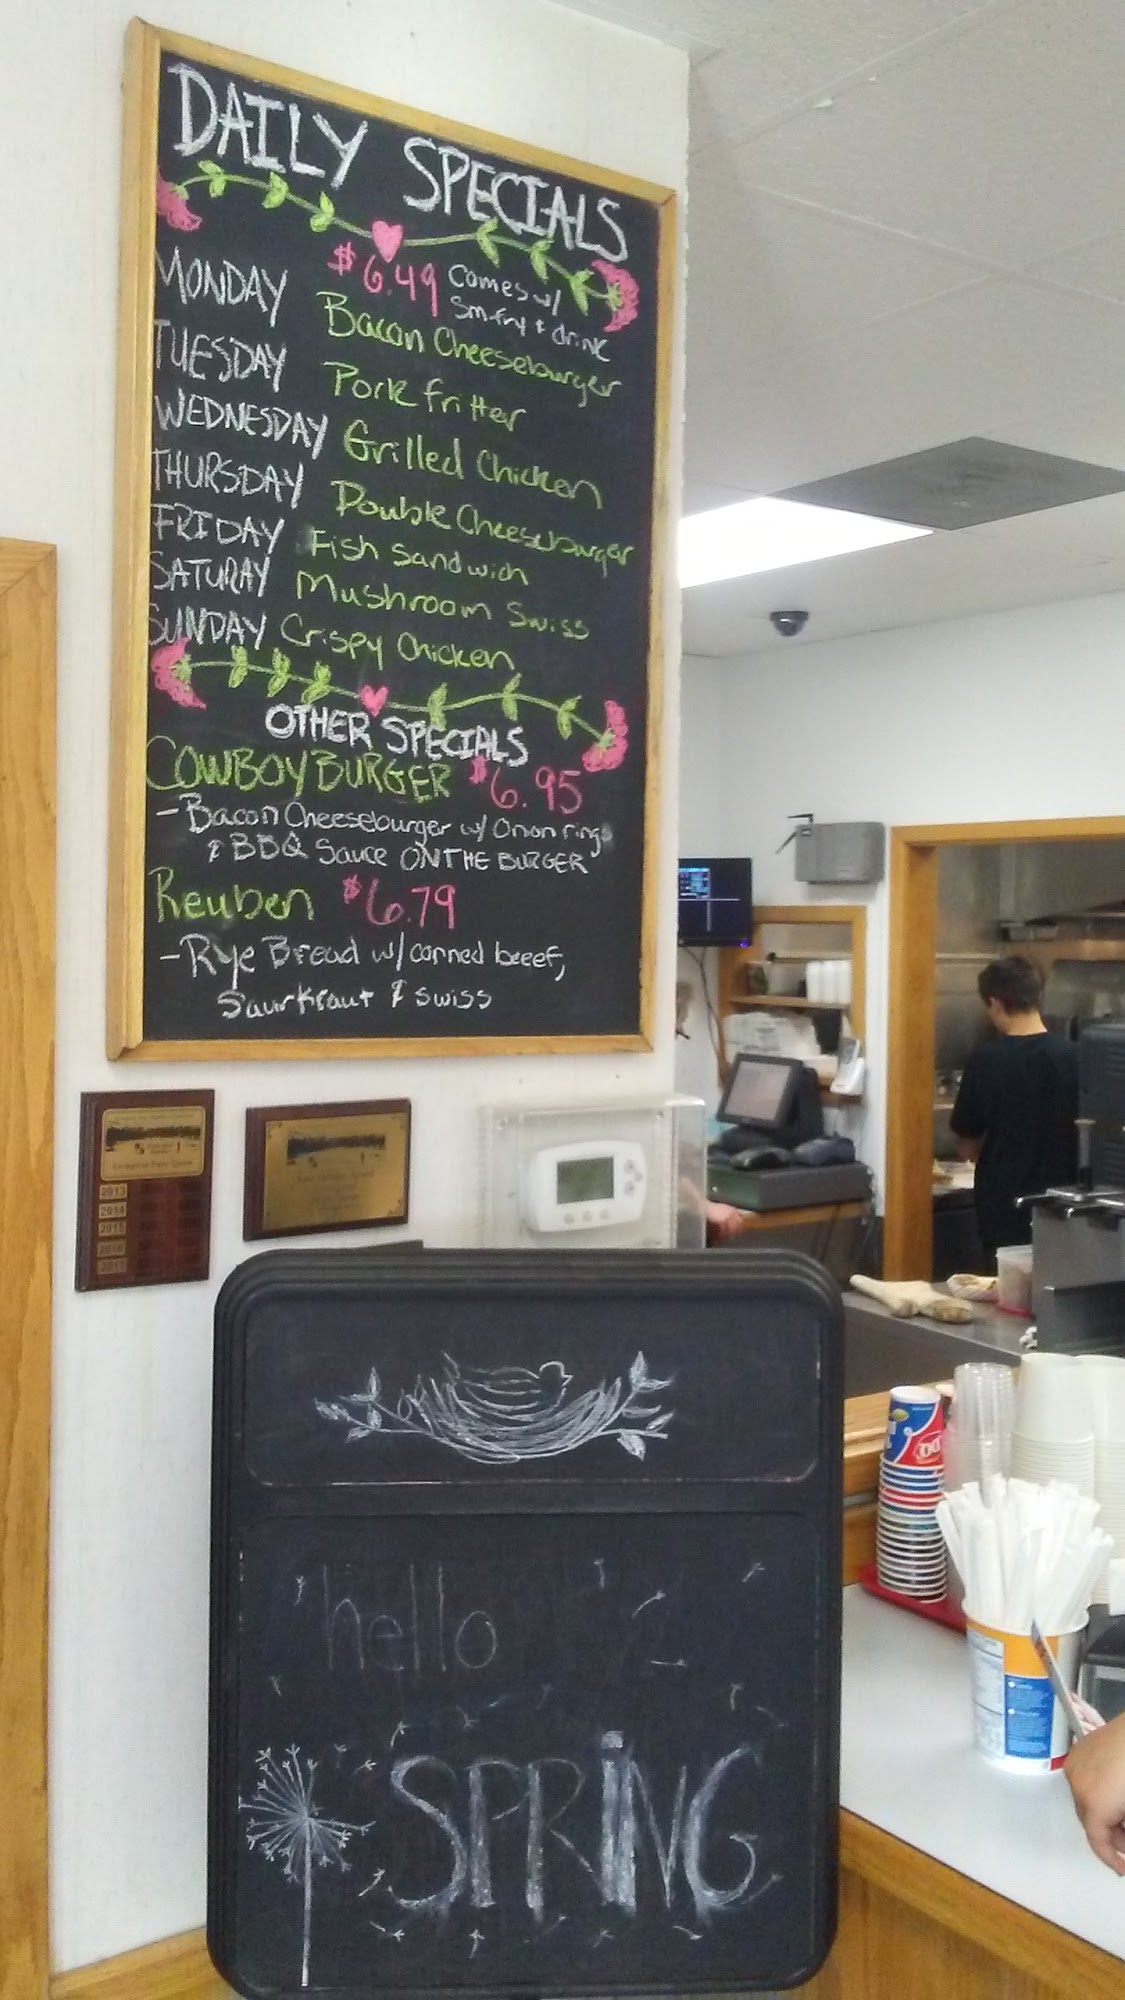 DAILY SPECIALS
$6.49 comes w/
sm fry & drink
MONDAY Bacon Cheeseburger
TUESDAY Pork fritter
WEDNESDAY Grilled Chicken
THURSDAY Double Cheeseburger
FRIDAY Fish Sandwich
SATURAY Mushroom Swiss
SUNDAY Crispy Chicken
OTHER SPECIALS
COWBOY BURGER $6.95
-Bacon Cheeseburger w/ Onion rings
& BBQ Sauce ON THE BURGER
Reuben $6.79
-Rye Bread w/ corned beeef,
Saurkraut & swiss
2013
2014
2015
2016
2017
hello
SPRING
DQ